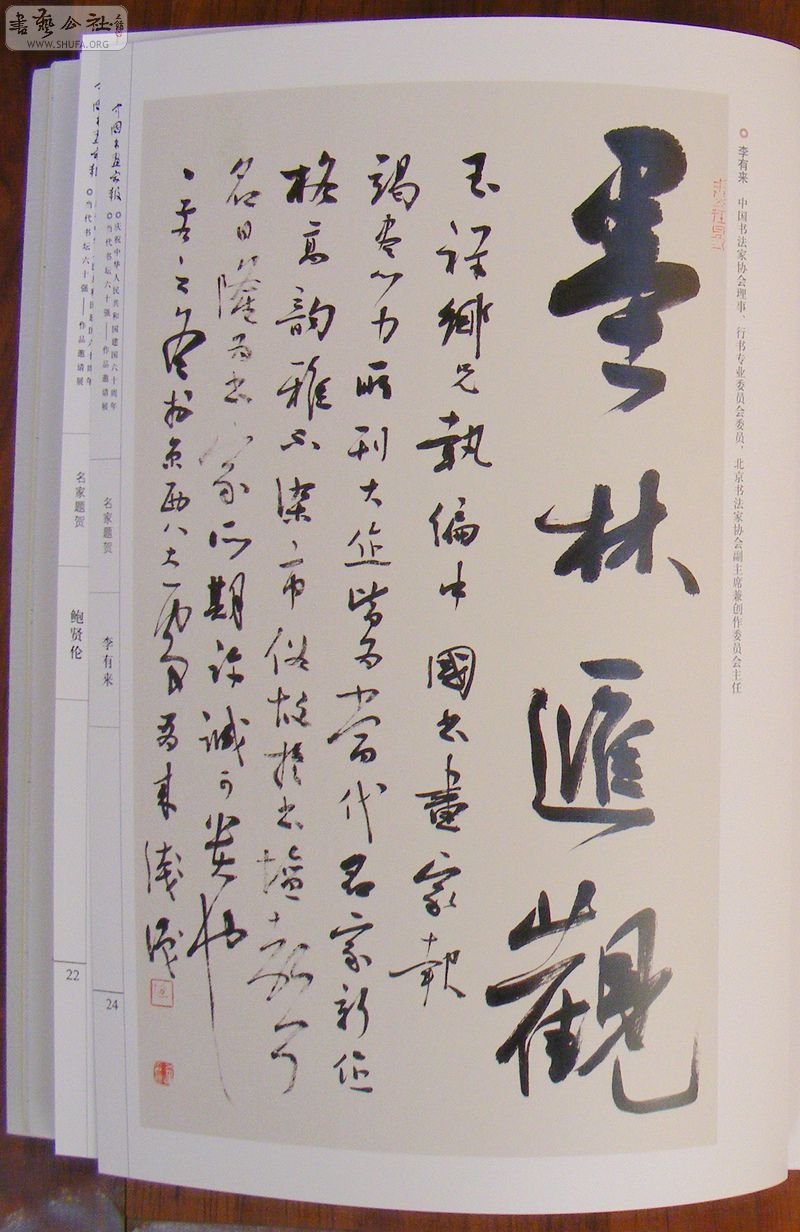 書藝公社
WWW.SHUFA.ORG
李有来 中国书法家协会理事、行书专业委员会委员,北京书法家协会副主席兼创作委员会主任
墨林匯觀
玉祥鄉兄執編中國书畫家報
竭盡心力所刊大作皆为当代名家新作
格高韵雅不染市俗故于书壇
名日隆为书家所期许誠可贵也
有来浅識
中国书画家报
庆祝中华人民共和国建国六十周年
当代书坛六十强——作品邀请展
名家题贺
李有来
24
当代书坛六十强——作品邀请展
名家题贺
鲍贤伦
22